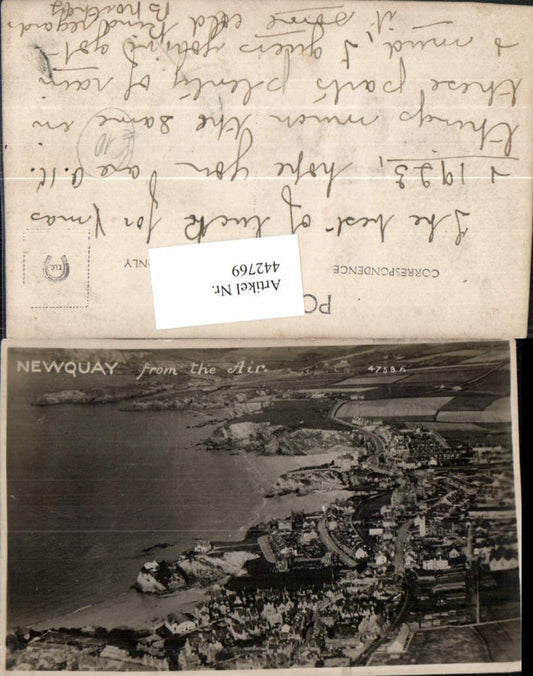 POS
CORRESPONDENCE
ONLY
Artikel Nr.
442769
The best of luck for Xmas
& 1923, hope you are O.K.
things much the same in
these parts plenty of rain
& mud, I guess you've got
it some cold
Kind regards
NEWQUAY from the Air.
4758 K